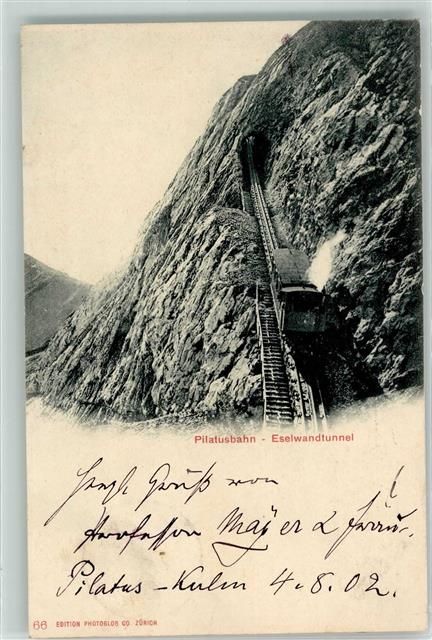 Pilatusbahn - Eselwandtunnel
Herzl. Gruß von
Professor Mayer &
Pilatus-Kulm 4.8.02.
66 EDITION PHOTOGLOB CO. ZÜRICH